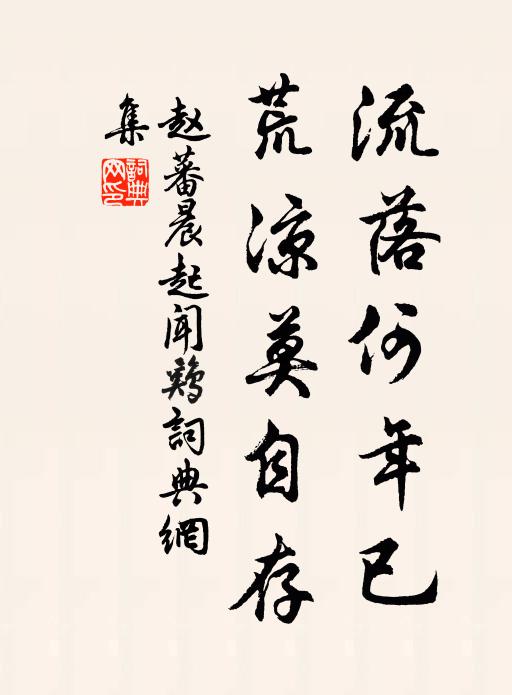 流落何年已
荒凉莫自存
赵蕃晨起闻鸡詞典網
集
詞典網印